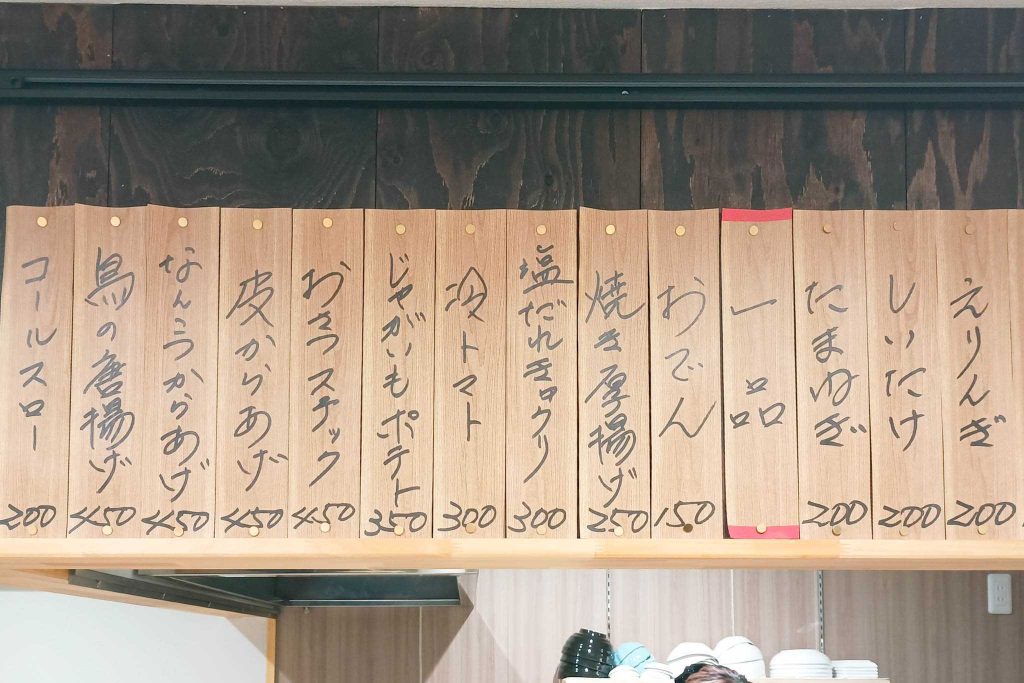 えりんぎ
200
しいたけ
200
たまねぎ
200
一品
おでん
150
焼き厚揚げ
250
塩だれきゅうり
300
冷トマト
300
じゃがいもポテト
350
おさつスチック
450
皮からあげ
450
なんこつからあげ
450
鳥の唐揚げ
450
コールスロー
200